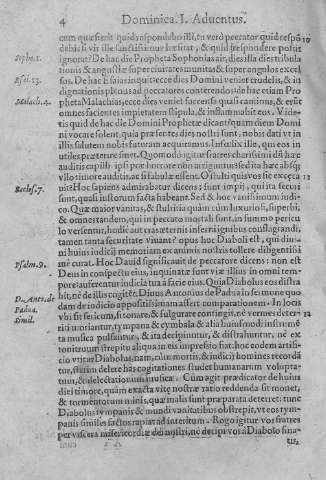 4 Dominica. I. Aduentus.
cum quæsierit quid respondebo illi, tu verò peccator quid respõ 10
debis si vit ille sanctissimus hæsitat, & quid respondere possit
Sopho. 1. ignorat? De hac die Propheta Sophonias ait, dies illa dies tribula
tionis & angustiæ super ciuitates munitas & super angulos excel
Esai. 13. sos. De hac Esaias inquit ecce dies Domini veniet crudelis, & in
dignationis plenus ad peccatores conterendos: de hac etiam Pro
Malach. 4. pheta Malachias, ecce dies veniet succensa quasi caminus, & erũt
omnes facientes impietatem stipula, & inflammabit eos. Vide
tis quid de hac die Domini Prophetæ dicant? quum istum Domi
ni vocare solent, quia præsentes dies nostri sunt, nobis dati vt in
illis salutem nobis futuram acquiramus. Infœlix ille, qui eos in
utiles præterire sinet. Quomodo igitur fratres charissimi dũ hæc
auditis capilli ipsi præ horrore non arriguntur sed ita hæc absq;
vllo timore auditis, ac si fabulæ essent. O stulti quis vos sic excęca
Eccles. 7. uit? Hoc sapiens admirabatur dicens; sunt impij, qui ita securi
sunt, quasi iustorum facta habeant. Sed & hoc vanissimum iudi-
co. Quæ maior vanitas, & stultitia quàm dum luxuriosi, superbi,
& omnes tandem, qui in peccato mortali sunt, in summo pericu
lo versentur, hodie aut cras æternis inferni ignibus conflagrandi,
tamen tanta securitate viuant? opus hæc Diaboli est, qui diui-
ni huius iudicij memoriam ex animis nostris tollere diligentissi
Psalm. 9. mè curat. Hoc Dauid significauit de peccatore dicens: non est
Deus in conspectu eius, inquinatæ sunt viæ illius in omni tem-
pore: auferentur iudicia tua à facie eius. Quia Diabolus eos distra
D. Anto. de hit, nè de illis cogitẽt. Diuus Antonius de Padua in sermone quo
Padua. dam de iudicio appositissimam assert comparationem. In locis
Simil. vbi sit sericum, si tonare, & fulgurare contingit, nè vermes deter-
riti moriantur, tympana & cymbala & alia huiusmodi instrumẽ
ta musica pulsantur, & ita decipiuntur, & distrahuntur, nè ex
tonitruum strepitu aliqua in eis impressio fiat: hoc eodem artifi-
cio vtitur Diabolus, nam, cùm mortis, & iudicij homines recordã
tur, statim delere has cogitationes studet humanarum volupta-
tum, & delectationum musica. Cùm agit prædicator de huius
diei timore, quàm exacta vitę nostræ ratio reddenda sit monet,
& tormentorum minis, quæ malis sunt præparata deterret: tunc
Diabolus tympanis & mundi vanitatibus obstrepit, vt eos tym-
panis similes factos rapiat ad interitum. Rogo igitur vos fratres
per viscera misericordiæ dei nostri, nè decipi vos à Diabolo sina-
tis,